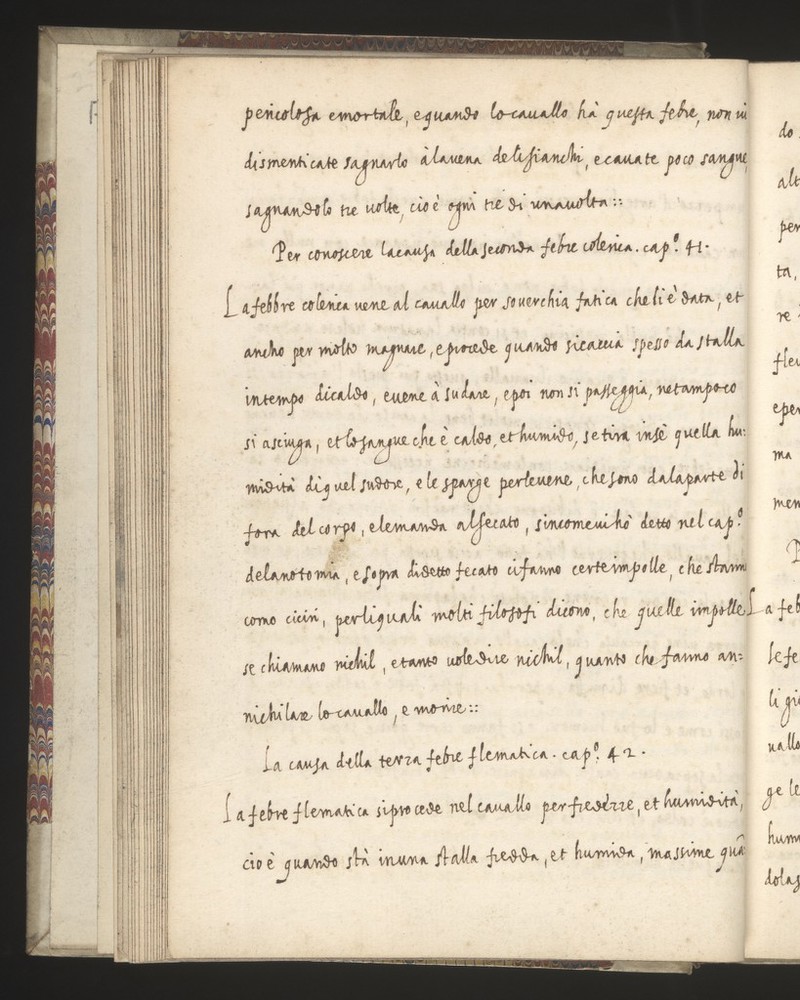 pericolosa e mortale, e quando lo cauallo hà questa febre, non ui
dismenticate sagnarlo à la uena deli fianchi, e cauate poco sangue,
sagnandolo tre uolte, cio è ogni tre di una uolta::
Per conoscere la causa della seconda febre colerica. cap.º 41.
La febbre colerica uene al cauallo per souerchia fatica che li è data, et
ancho per molto magnare, e procede quando si caccia spesso da stalla
in tempo di caldo, e uene à sudare, e poi non si passeggia, ne tampoco
si asciuga, et lo sangue che è caldo, et humido, se tira in sè quella hu:
midità di quel sudore, e le sparge per le uene, che sono da la parte di
fora del corpo, e le manda al fecato, sincome ui hò detto nel cap.º
de la notomia, e sopra di detto fecato ci fanno certe impolle, che stanno
como ciciri, per li quali molti filosofi dicono, che quelle impolle
se chiamano nichil, e tanto uole dire nichil, quanto che fanno an=
nichilare lo cauallo, e morire::
La causa della terza febre flematica. cap.º 42.
La febre flematica si procede nel cauallo per fredezze, et humidità,
cio è quando stà in una stalla fredda, et humida, massime quã
do
alt
per
ta,
re
fleu
eper
ma
men
P
La feb
se fe
li gi
uallo
ge le
hum
dolas